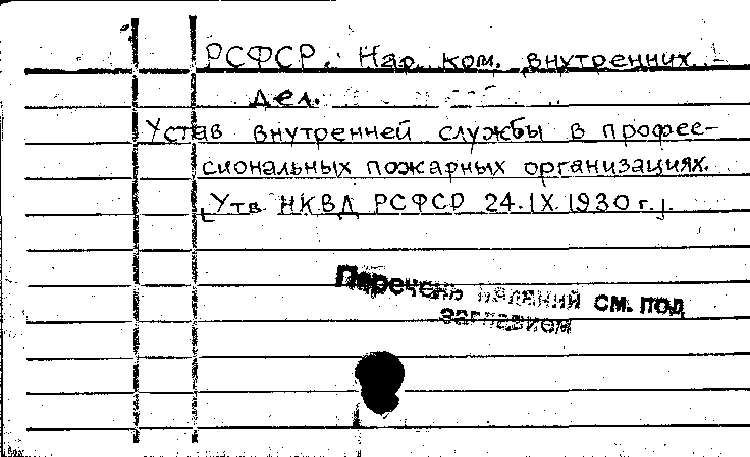 РСФСР. Нар. ком. внутренних
дел.
Устав внутренней службы в профес-
сиональных пожарных организациях.
[Утв НКВД РСФСР 24.IX.1930 г.].
Перечень изданий см. под
заглавием